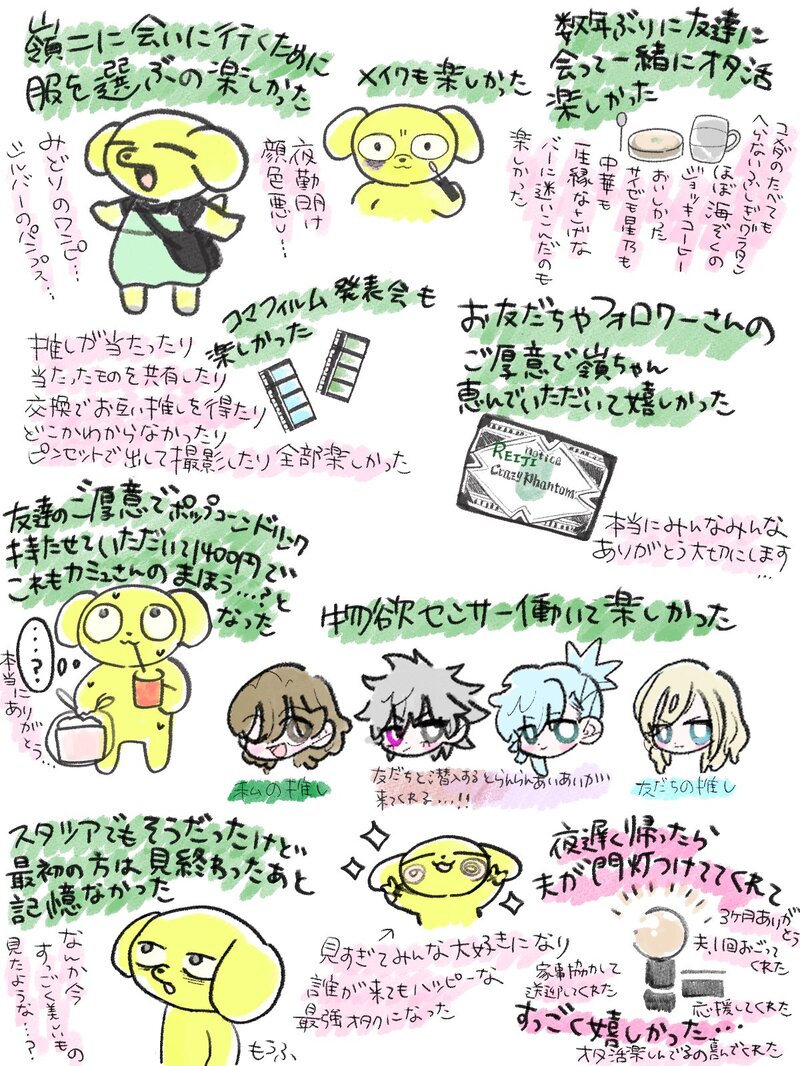 嶺二に会いに行くために
服を選ぶの楽しかった
みどりのワンピ…
シルバーのパンプス…
メイクも楽しかった
夜勤明け
顔色悪し…
数年ぶりに友達に
会って一緒にオタ活
楽しかった
コメダのたべても
へらないふしぎグラタン
ほぼ海ぞくの
ジョッキコーヒー
おいしかった
サゼも星乃も
中華も
一生縁なさげな
バーに迷いこんだのも
楽しかった
コマフィルム発表会も
楽しかった
推しが当たったり
当たったものを共有したり
交換でお互い推しを得たり
どこかわからなかったり
ピンセットで出して撮影したり全部楽しかった
お友だちやフォロワーさんの
ご厚意で嶺ちゃん
恵んでいただいて嬉しかった
REIJI
notice
Crazy Phantom
本当にみんなみんな
ありがとう大切にします
…
友達のご厚意でポップコーンドリンク
持たせていただいて1400円で
これもカミュさんのまほう…?と
なった
…?
本当にありがとう…
物欲センサー働いて楽しかった
私の推し
友だちと潜入するとらんらんあいあいが…
来てくれる…!!
友だちの推し
スタツアでもそうだったけど
最初の方は見終わったあと
記憶なかった
なんか今
すっごく美しいもの
見たような…?
見すぎてみんな大好きになり
誰が来てもハッピーな
最強オタクになった
もろふ、
夜遅く帰ったら
夫が門灯つけててくれて
3ヶ月ありがとう
夫、1回おごってくれた
家事協力して
送迎してくれた
応援してくれた
すっごく嬉しかった…
オタ活楽しんでるの喜んでくれた